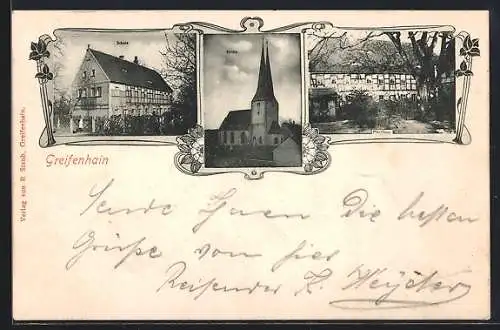 Schule
Kirche
Pfarrhaus
Greifenhain
Verlag von R. Staub, Greifenhain.
Sende Ihnen die besten
Grüße von hier
Reisender K.